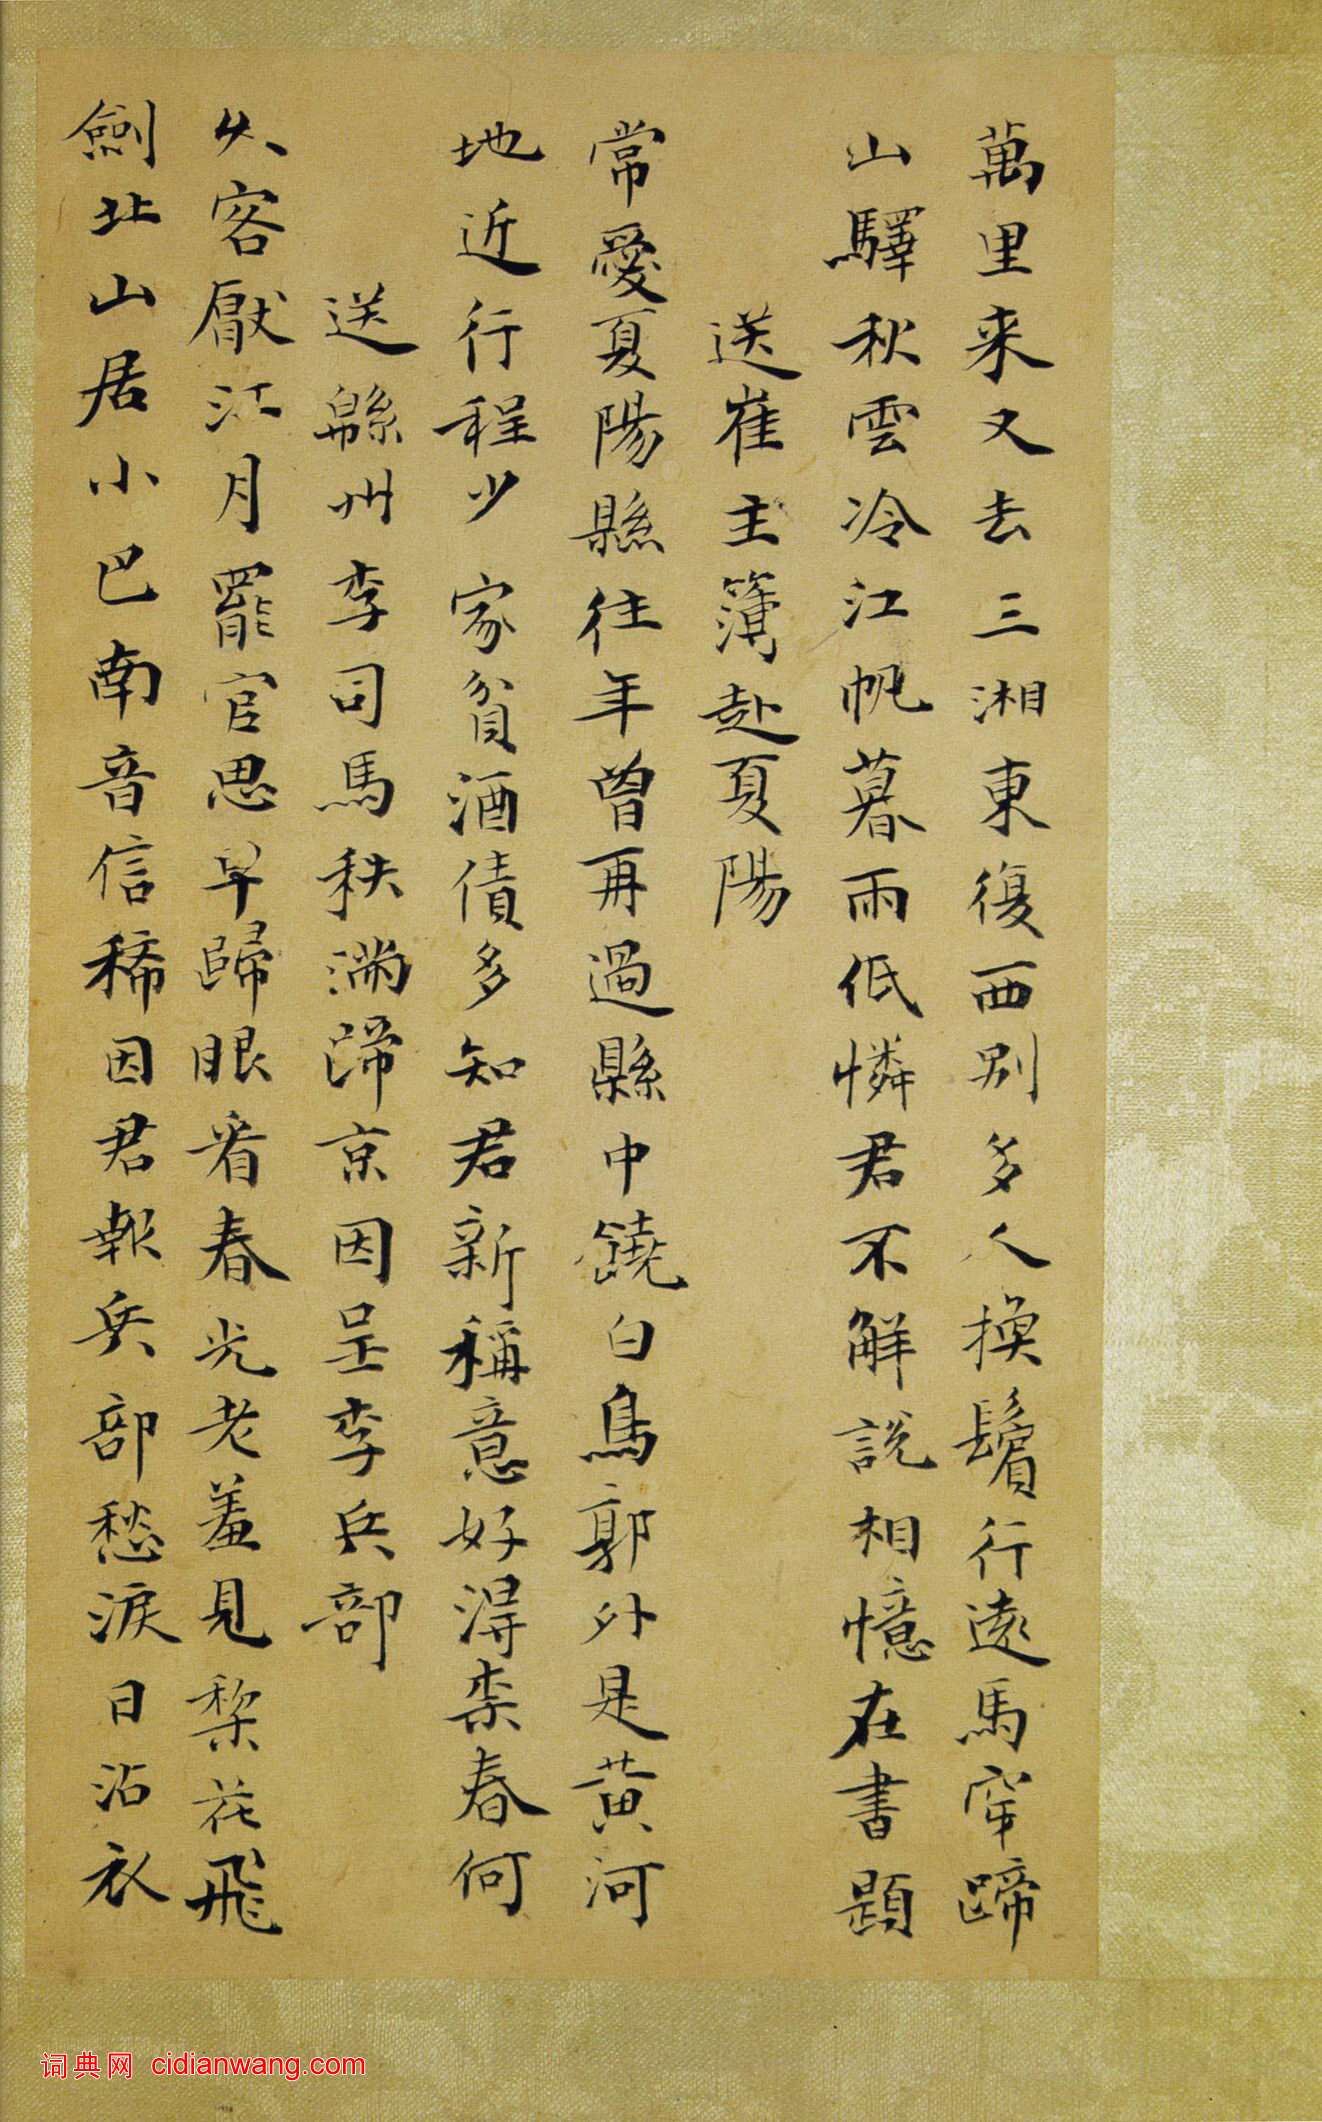 萬里来又去三湘東復西别多人換鬢行遠馬穿蹄
山驛秋雲冷江帆暮雨低憐君不解説相憶在書題
送崔主簿赴夏陽
常愛夏陽縣往年曾再過縣中饒白鳥郭外是黃河
地近行程少家貧酒債多知君新稱意好得柰春何
送緜州李司馬秩滿歸京因呈李兵部
久客厭江月罷官思早歸眼看春光老羞見梨花飛
劍北山居小巴南音信稀因君報兵部愁淚日沾衣
词典网 cidianwang.com